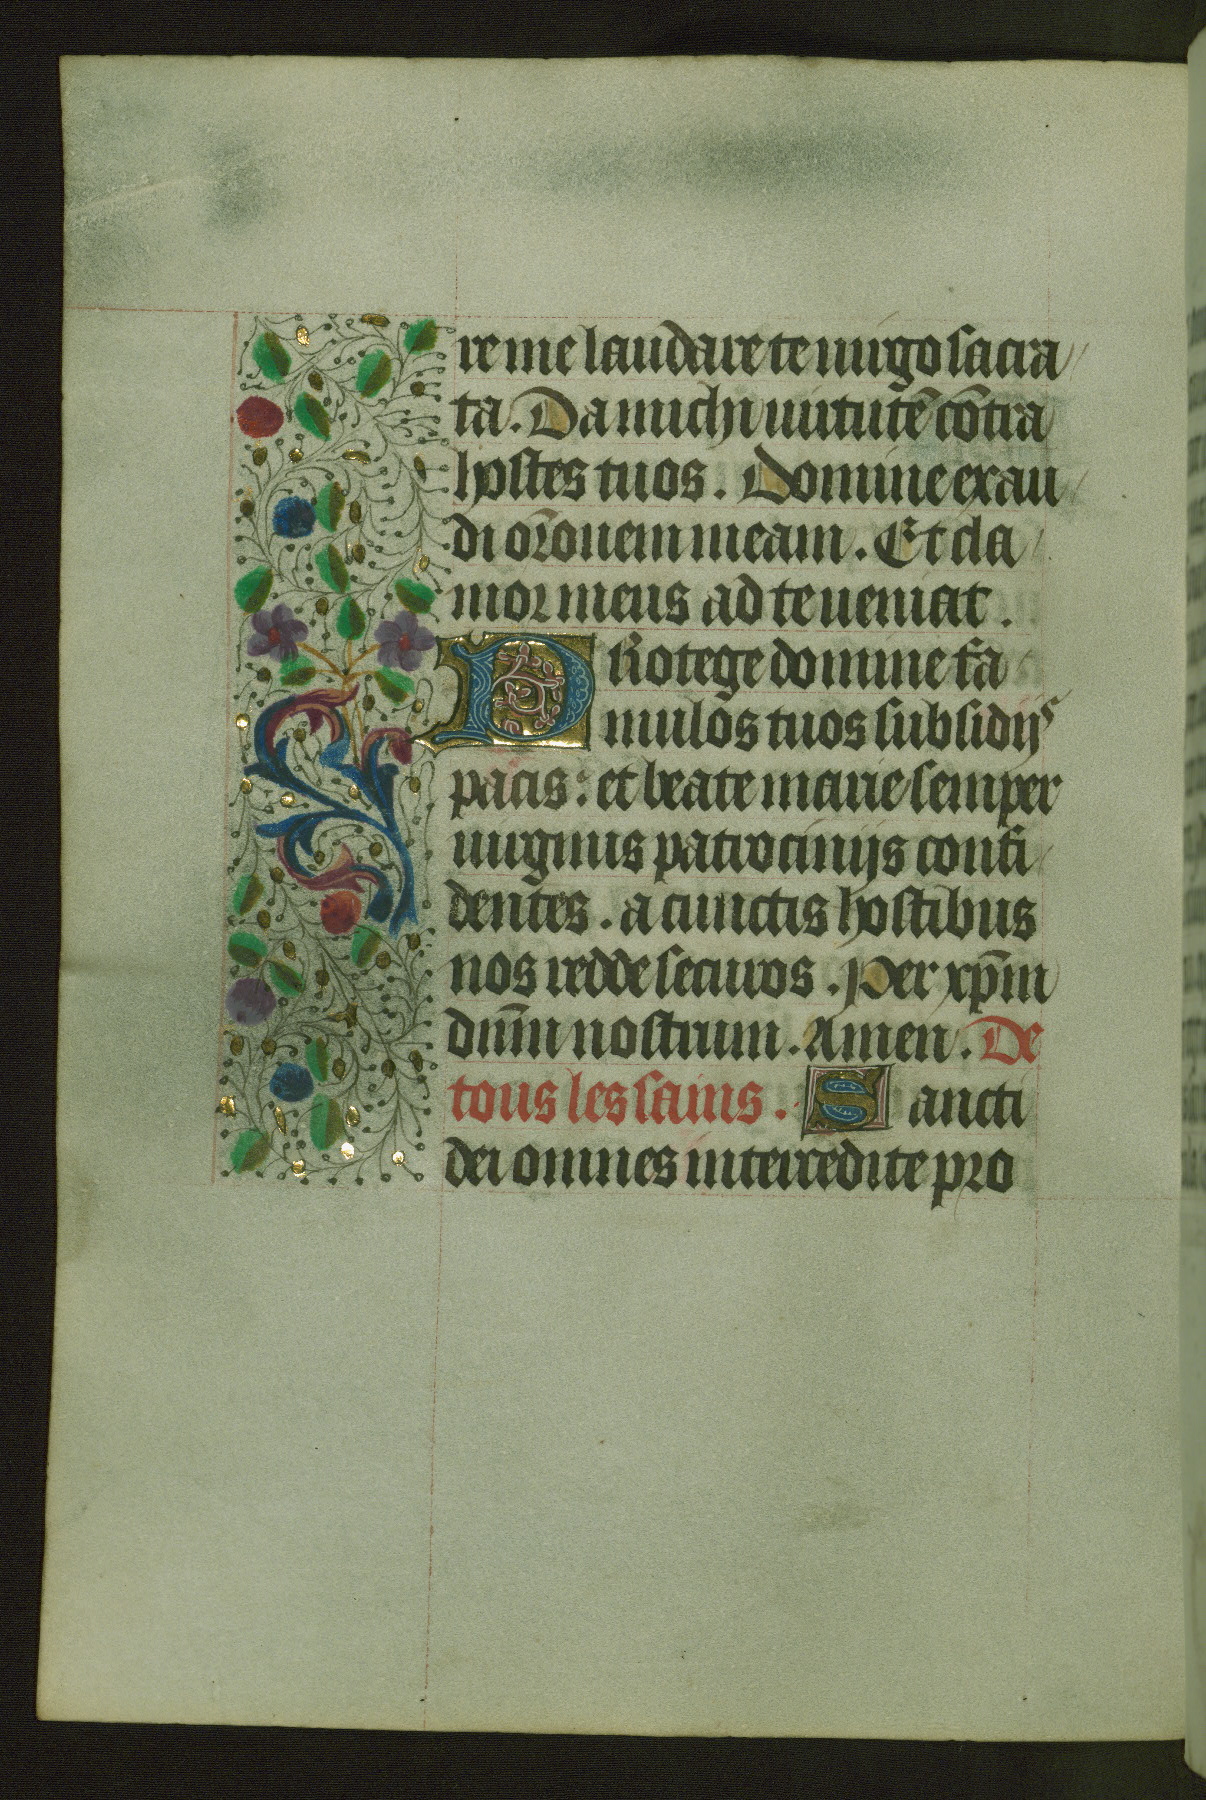 re me laudare te uirgo sacra
ta. Da michi uirtutē cōtra
hostes tuos. Domine exau
di or̄onem meam. Et cla
mor meus ad te ueniat.
PRotege domine fa
mulos tuos subsidijs
pacis: et beate marie semper
uirginis patrocinijs confi
dentes. a cunctis hostibus
nos redde securos. Per xp̄m
dn̄m nostrum. Amen. De
tous les sains. Sancti
dei omnes intercedite pro